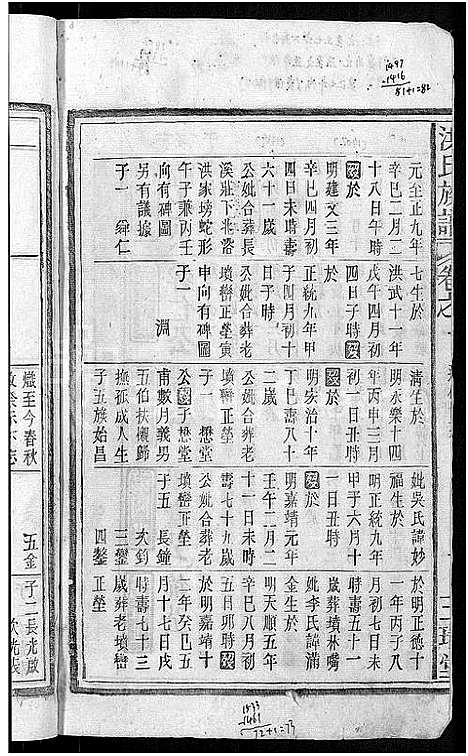 1497
-1416
81+1=82
洪氏族譜
卷之一
三瑞堂
元至正九年
辛巳二月二
十八日午時
歿於
明建文三年
辛巳四月初
四日未時壽
六十一歲
公妣合葬長
溪莊下北滘
洪家塝蛇形
午子兼丙壬
向有碑圖
另有議據
子一 舜仁
七生於
洪武十一年
戊午四月初
四日子時歿
於
正統九年甲
子四月初十
日巳時
公妣合葬老
墳巒正塋寅
申向有碑圖
子一 淵
清生於
明永樂十四
年丙申三月
歿於
明宏治十年
丁巳壽八十
二歲
公妣合葬老
墳巒正塋
子一 懋堂
公歿子懋堂
甫數月義男
五伯扶櫬歸
撫孤成人生
子五族始昌
妣吳氏諱妙
福生於
明正統九年
甲子六月十
一日丑時
歿於
明嘉靖元年
壬午二月二
十一日未時
壽七十九歲
公妣合葬老
墳巒正塋
子五 長鐘
次鈞
三璽
四鏊
於明正德十
一年丙子八
月初七日未
時壽五十一
歲葬墳林
妣李氏諱滿
金生於
明天順五年
辛巳八月初
五日卯時歿
於明嘉靖十
二年癸巳五
月十七日戌
時壽七十三
歲葬老墳巒
正塋
五金
至今春秋
子二長光啟
1533
-1461
72+1=73